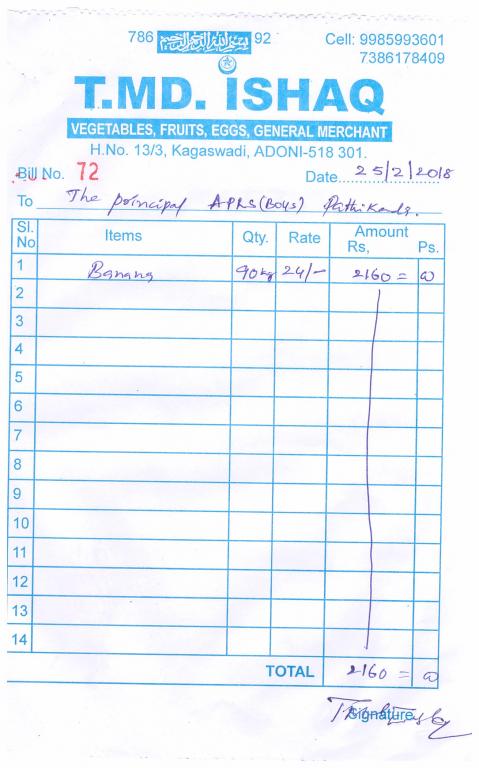 786 بسم الله الرحمن الرحيم 92
Cell: 9985993601
7386178409
T.MD. ISHAQ
VEGETABLES, FRUITS, EGGS, GENERAL MERCHANT
H.No. 13/3, Kagaswadi, ADONI-518 301.
Bill No. 72 Date 25/2/2018
To The principal APRS (Boys)
Sl. No Items Qty. Rate Amount Rs, Ps.
1 Banana 90kg 24/- 2160 = 00
2
3
4
5
6
7
8
9
10
11
12
13
14
TOTAL 2160 = 00
Signature